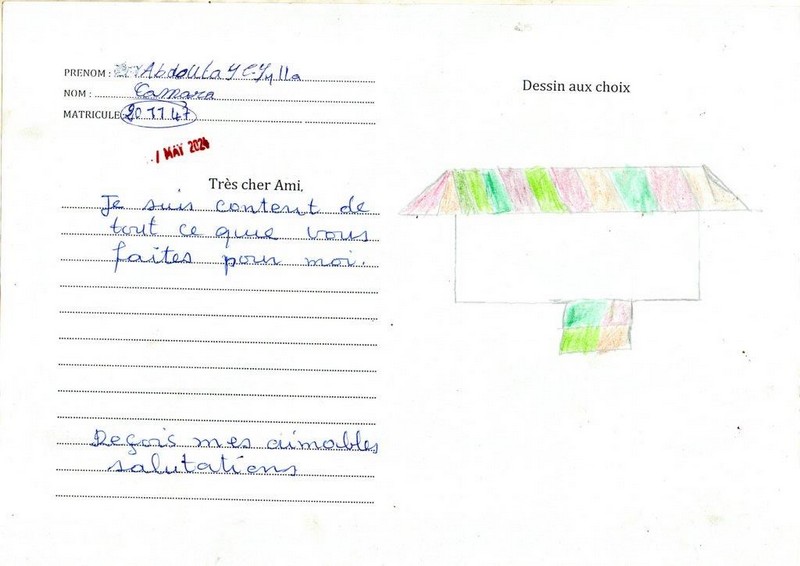 PRENOM : Abdoulaye Sylla
NOM : Camara
MATRICULE: 201147
MAY 2024
Très cher Ami,
Je suis content de
tout ce que vous
faites pour moi.
Reçois mes aimables
salutations
Dessin aux choix